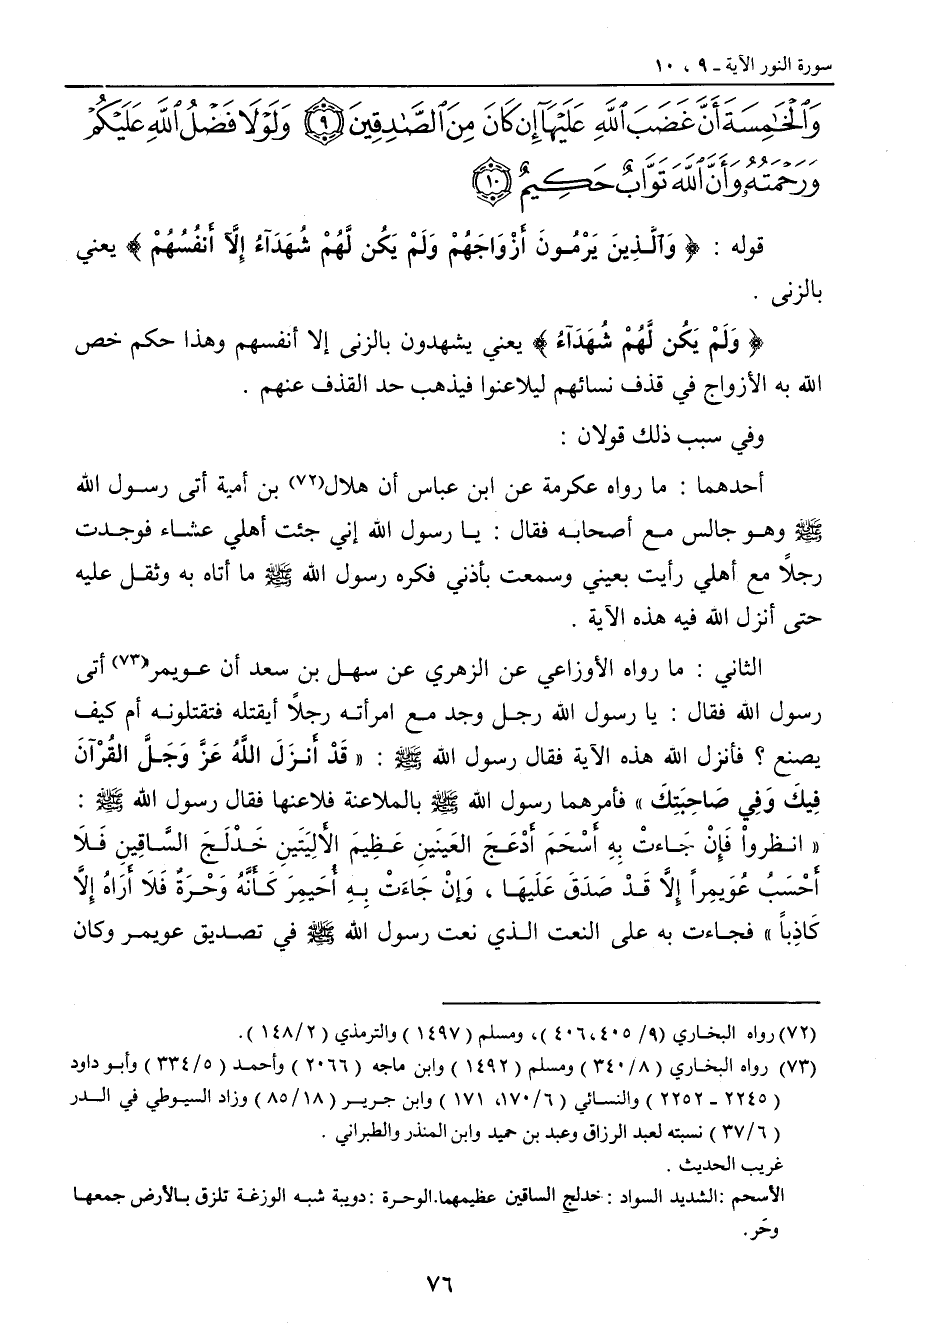 سورة النور الآية ـ ٩ ، ١٠
وَٱلْخَٰمِسَةَ أَنَّ غَضَبَ ٱللَّهِ عَلَيْهَآ إِن كَانَ مِنَ ٱلصَّٰدِقِينَ ﴿٩﴾ وَلَوْلَا فَضْلُ ٱللَّهِ عَلَيْكُمْ
وَرَحْمَتُهُۥ وَأَنَّ ٱللَّهَ تَوَّابٌ حَكِيمٌ ﴿١٠﴾
قوله : ﴿ وَٱلَّذِينَ يَرْمُونَ أَزْوَاجَهُمْ وَلَمْ يَكُن لَّهُمْ شُهَدَآءُ إِلَّآ أَنفُسُهُمْ ﴾ يعني
بالزنى .
﴿ وَلَمْ يَكُن لَّهُمْ شُهَدَآءُ ﴾ يعني يشهدون بالزنى إلا أنفسهم وهذا حكم خص
الله به الأزواج في قذف نسائهم ليلاعنوا فيذهب حد القذف عنهم .
وفي سبب ذلك قولان :
أحدهما : ما رواه عكرمة عن ابن عباس أن هلال(٧٢) بن أمية أتى رسول الله
ﷺ وهو جالس مع أصحابه فقال : يا رسول الله إني جئت أهلي عشاء فوجدت
رجلاً مع أهلي رأيت بعيني وسمعت بأذني فكره رسول الله ﷺ ما أتاه به وثقل عليه
حتى أنزل الله فيه هذه الآية .
الثاني : ما رواه الأوزاعي عن الزهري عن سهل بن سعد أن عويمر(٧٣) أتى
رسول الله فقال : يا رسول الله رجل وجد مع امرأته رجلاً أيقتله فتقتلونه أم كيف
يصنع ؟ فأنزل الله هذه الآية فقال رسول الله ﷺ : « قَدْ أَنزَلَ اللَّهُ عَزَّ وَجَلَّ القُرْآنَ
فِيكَ وَفِي صَاحِبَتِكَ » فأمرهما رسول الله ﷺ بالملاعنة فلاعنها فقال رسول الله ﷺ :
« انظروا فَإِنْ جَاءت بِهِ أَسْحَمَ أَدْعَجَ العَينَينِ عَظِيمَ الأَلِيَتَينِ خَدْلَجَ السَّاقَينِ فَلَا
أَحْسَبُ عُوَيمِراً إِلَّا قَدْ صَدَقَ عَلَيهَا ، وَإِنْ جَاءَتْ بِهِ أُحَيمِرَ كَأَنَّهُ وَحْرَةٌ فَلَا أَرَاهُ إِلَّا
كَاذِباً » فجاءت به على النعت الذي نعت رسول الله ﷺ في تصديق عويمر وكان
(٧٢) رواه البخاري (٩/ ٤٠٥ ، ٤٠٦ )، ومسلم ( ١٤٩٧ ) والترمذي ( ١٤٨/٢ ).
(٧٣) رواه البخاري ( ٣٤٠/٨ ) ومسلم ( ١٤٩٢ ) وابن ماجه ( ٢٠٦٦ ) وأحمد ( ٣٣٤/٥ ) وأبو داود
( ٢٢٤٥ ـ ٢٢٥٢ ) والنسائي ( ١٧٠/٦، ١٧١ ) وابن جرير ( ٨٥/١٨ ) وزاد السيوطي في الدر
( ٣٧/٦ ) نسبته لعبد الرزاق وعبد بن حميد وابن المنذر والطبراني .
غريب الحديث .
الأسحم :الشديد السواد : خدلج الساقين عظيمهما.الوحرة :دويبة شبه الوزغة تلزق بالأرض جمعها
وحَر.
٧٦